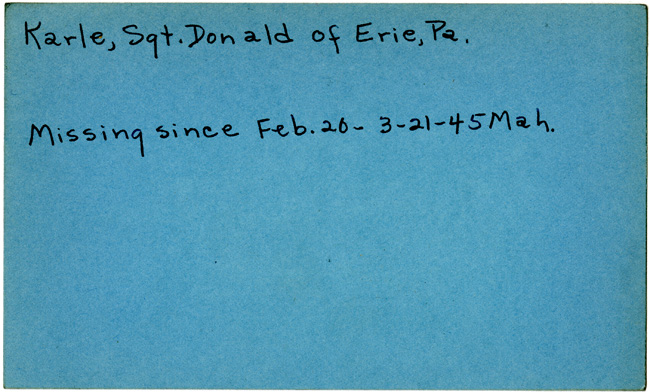 Karle, Sgt. Donald of Erie, Pa.
Missing since Feb. 20- 3-21-45 Mah.